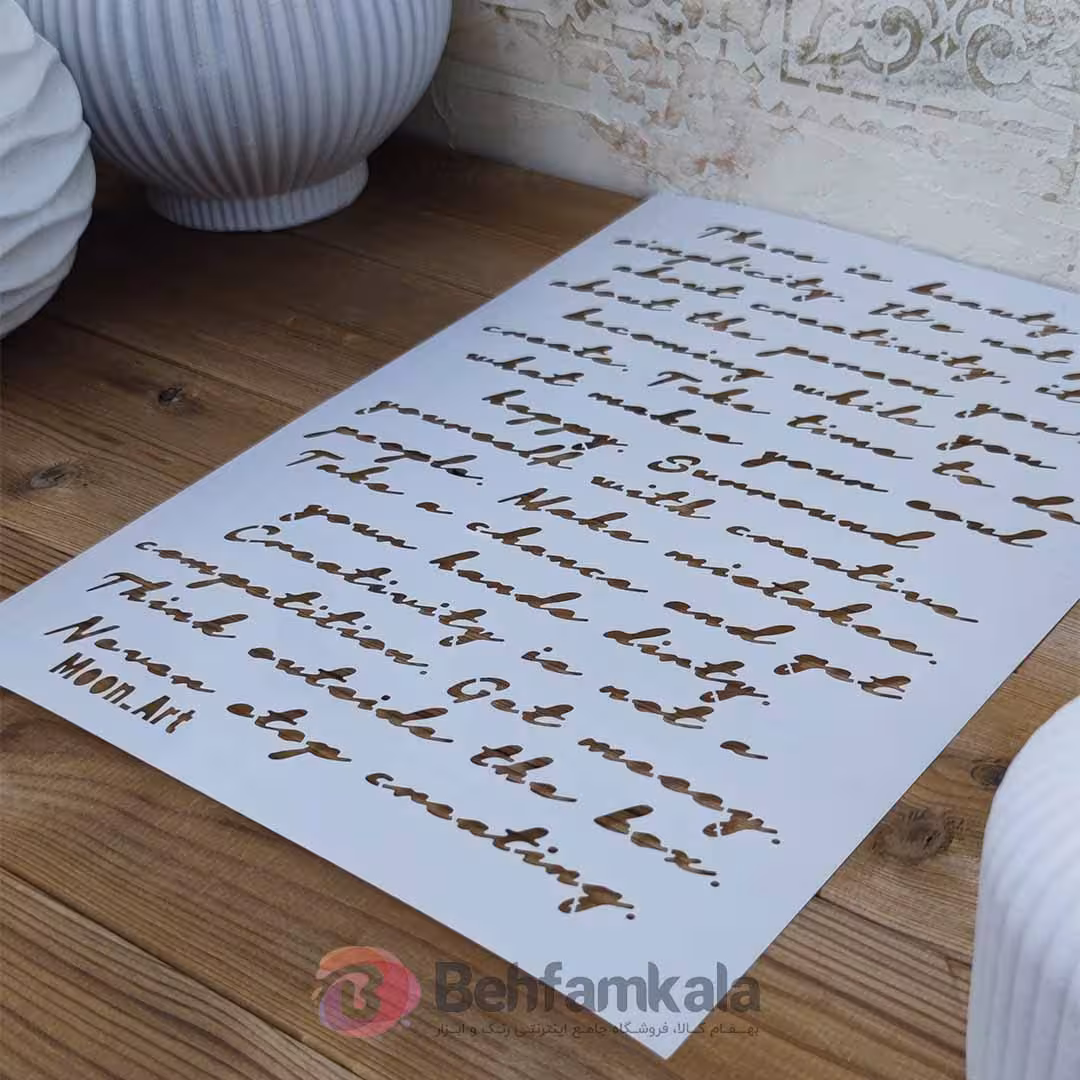 There is beauty
simplicity Its not
about creativity. it
about the person you
becoming while you
create. Take time to do
what makes your soul
happy. Surround
yourself with creative
people. Make mistakes.
Take a chance and get
your hands dirty.
Creativity is not a
competition. Get messy.
Think outside the box.
Never stop creating.
Moon_Art
Behfamkala
بهـفـام کـالـا، فروشـگاه جامـع اینترنتـی رنـگ و ابـزار